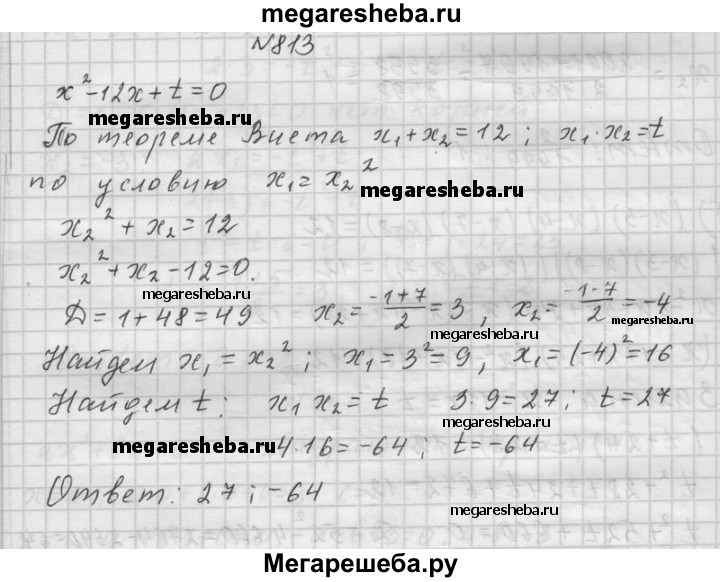 megaresheba.ru
№813
x²-12x+t=0
megaresheba.ru
По теореме Виета x₁+x₂=12; x₁·x₂=t
по условию x₁=x₂²
megaresheba.ru
x₂²+x₂=12
x₂²+x₂-12=0.
megaresheba.ru
D=1+48=49 x₂=(-1+7)/2=3, x₂=(-1-7)/2=-4
megaresheba.ru
megaresheba.ru
Найдем x₁=x₂²; x₁=3²=9; x₁=(-4)²=16
Найдем t: x₁x₂=t 3·9=27; t=27
megaresheba.ru
megaresheba.ru
4·16=-64; t=-64
Ответ: 27; -64
megaresheba.ru
Мегарешеба.ру